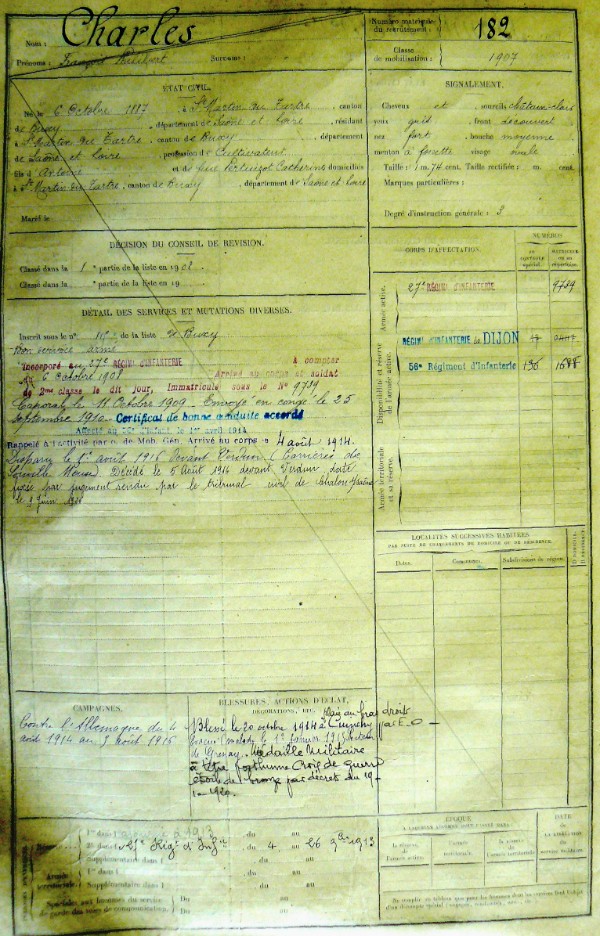 Nom : Charles
Prénoms : François Philibert Surnoms :
Numéro matricule du recrutement : 182
Classe de mobilisation : 1907
ÉTAT CIVIL.
Né le 6 Octobre 1887, à St Martin du Tartre, canton
de Buxy, département de Saône et Loire, résidant
à St Martin du Tartre, canton de Buxy, département
de Saône et Loire, profession de Cultivateur
fils d'Antoine et de feue Catherine domiciliés
à St Martin du Tartre, canton de Buxy, département de Saône et Loire
Marié le
SIGNALEMENT.
Cheveux et sourcils châtain-clair
yeux gris, front découvert
nez fort, bouche moyenne
menton à fossette visage ovale
Taille : 1 m. 74 cent. Taille rectifiée : m. cent.
Marques particulières :
Degré d'instruction générale : 3
DÉCISION DU CONSEIL DE RÉVISION.
Classé dans la 1e partie de la liste en 1908.
Classé dans la e partie de la liste en 19
DÉTAIL DES SERVICES ET MUTATIONS DIVERSES.
Inscrit sous le n° de la liste de Buxy
Bon service armé
Incorporé au 27e RÉGIMENT D'INFANTERIE à compter
du 6 Octobre 1908 Arrivé au corps et soldat
de 2me classe le dit jour, Immatriculé sous le N° 9739
Caporal le 11 Octobre 1909 - Envoyé en congé le 25
Septembre 1910 Certificat de bonne conduite accordé
Affecté au d'Infant. le 1er avril 1914
Rappelé à l'activité par o. de Mob. Gén. Arrivé au corps le 4 août 1914.
Disparu le 5 août 1916 devant Verdun (Carrières de
Meuse) Décédé le 5 Août 1916 devant Verdun, date
fixée par jugement rendu par le tribunal civil de Chalon s/Saône
le Juin
CORPS D'AFFECTATION.
NUMÉROS
au contrôle spécial.
matricule ou au répertoire.
Armée active.
27e RÉGIMENT D'INFANTERIE 9739
Disponibilité et réserve de l'armée active.
RÉGIMt d'INFANTERIE de DIJON
56e Régiment d'Infanterie 136 1688
Armée territoriale et sa réserve.
LOCALITÉS SUCCESSIVES HABITÉES
PAR SUITE DE CHANGEMENTS DE DOMICILE OU DE RÉSIDENCE.
Dates. Communes. Subdivisions de région.
CAMPAGNES.
Contre l'Allemagne du 4
août 1914 au 5 août 1916
BLESSURES, ACTIONS D'ÉCLAT,
DÉCORATIONS, ETC.
Blessé le 20 octobre 1914 à Cuinchy
Plaie au bras droit par E.O
Évacué malade le 1er février 1915
Médaille Militaire
à titre posthume Croix de guerre
étoile de bronze par décret du 19-
1-1920.
Armée territoriale.
Supplémentaire dans l
1re dans l
Supplémentaire dans l
du 4 au 26 9bre 1913
Spéciale aux hommes du service
de garde des voies de communication.
Du au
ÉPOQUE
DATE de LA LIBÉRATION du service militaire.